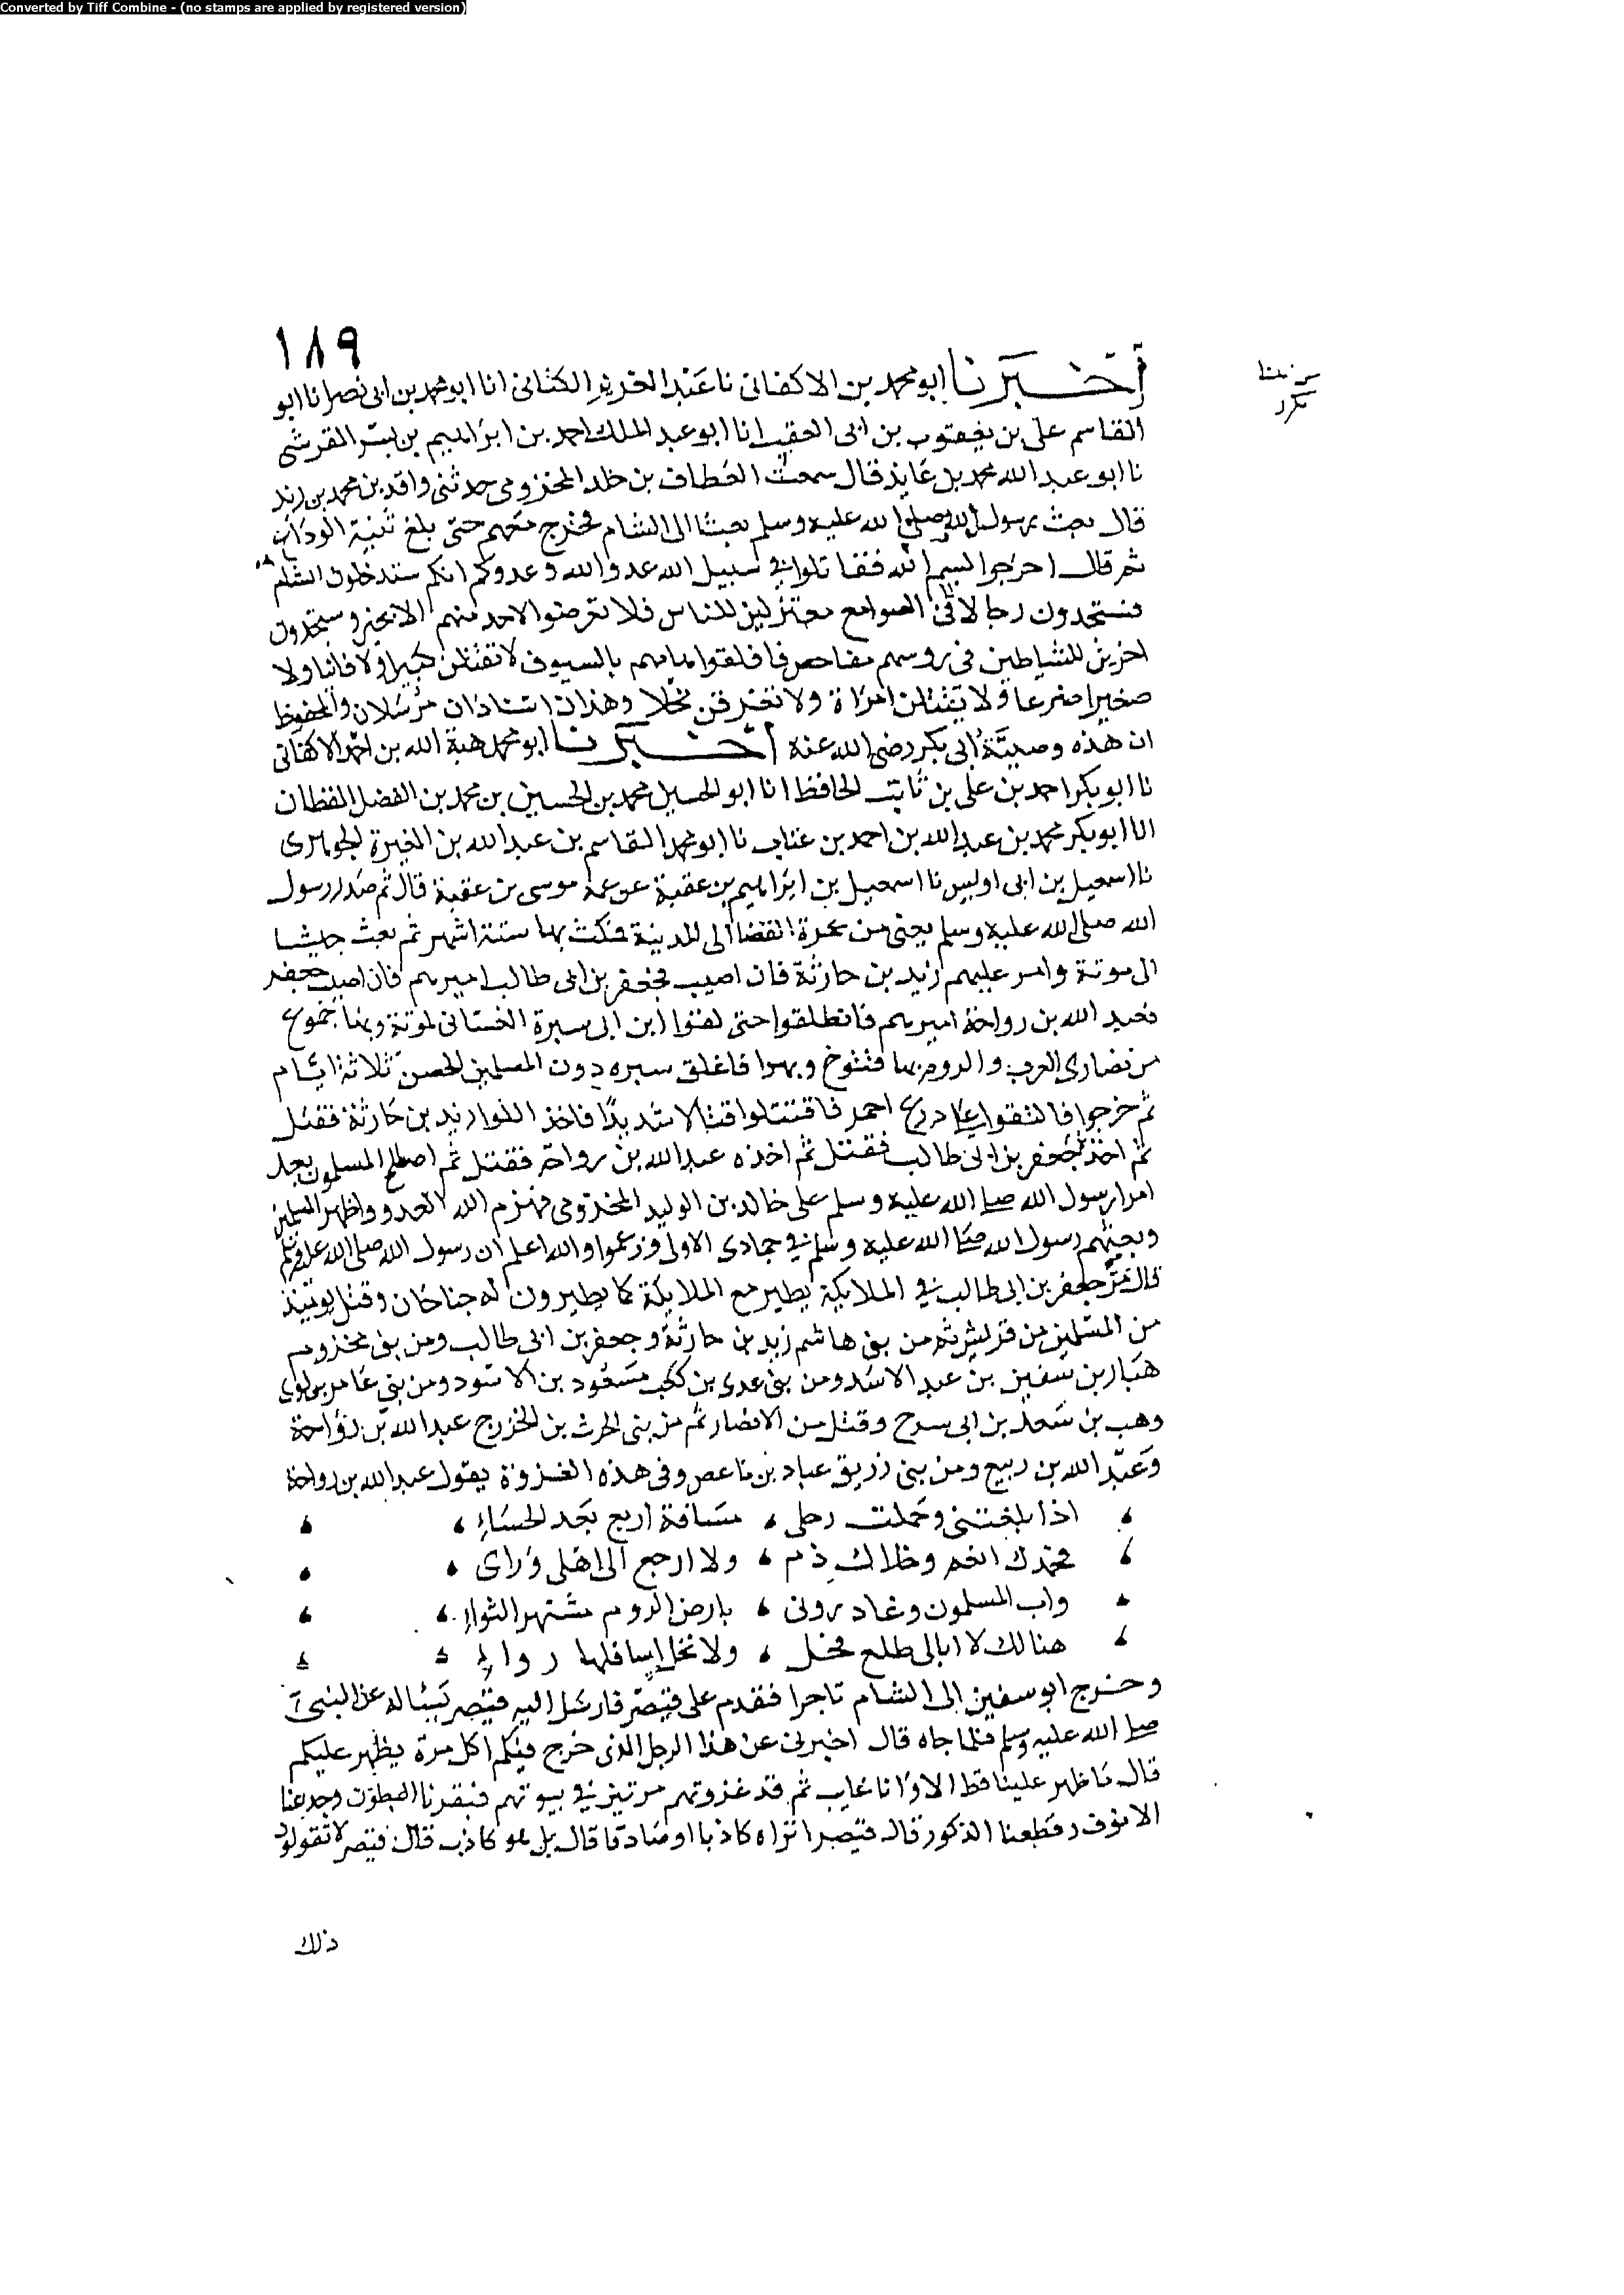 Converted by Tiff Combine - (no stamps are applied by registered version)
١٨٩
مكرر
أخبرنا ابو محمد بن الاكفانى نا عبد العزيز الكتانى انا ابو محمد بن ابى نصر انا ابو
القاسم على بن يعقوب بن ابى العقب انا ابو عبد الملك احمد بن ابراهيم بن بسر القرشى
نا ابو عبد الله محمد بن عايذ قال سمعت العطاف بن خلد المخزومى حدثنى واقد بن محمد بن زيد
قال بعث رسول الله صلى الله عليه وسلم بعثا الى الشام فخرج معهم حتى بلغ ثنية الوداع
ثم قال اخرجوا بسم الله فقاتلوا في سبيل الله عدو الله وعدوكم انكم ستدخلون الشام
فستجدون رجالا في الصوامع معتزلين للناس فلا تعرضوا لاحد منهم الا بخير وستجدون
اخرين للشياطين فى روسهم مفاحص فافلقوا هامهم بالسيوف لا تقتلن كبيرا ولا فانيا ولا
صغيرا ضرعا ولا تقتلن امراة ولا تغرقن نخلا وهذان اسنادان مرسلان والمحفوظ
ان هذه وصية ابى بكر رضى الله عنه أخبرنا ابو محمد هبة الله بن احمد الاكفانى
نا ابو بكر احمد بن على بن ثابت الحافظ انا ابو الحسين محمد بن الحسين بن محمد بن الفضل القطان
انا ابو بكر محمد بن عبد الله بن احمد بن عتاب نا ابو محمد القاسم بن عبد الله بن المغيرة الجوهرى
نا اسمعيل بن ابى اويس نا اسمعيل بن ابراهيم بن عقبة عن عمه موسى بن عقبة قال ثم صدر رسول
الله صلى الله عليه وسلم يعنى من عمرة القضا الى المدينة فمكث بها ستة اشهر ثم بعث جيشا
الى موتة وامر عليهم زيد بن حارثة فان اصيب فجعفر بن ابى طالب اميرهم فان اصيب جعفر
فعبد الله بن رواحة اميرهم فانطلقوا حتى لقوا ابن ابى سبرة الغسانى بموتة وبها جموع
من نصارى العرب والروم بها فتنوخ وبهرا فاغلق سبره دون المسلمين الحصن ثلاثة ايام
ثم خرجوا فالتقوا على درع احمر فاقتتلوا قتالا شديدا فاخذ اللوا زيد بن حارثة فقتل
ثم اخذه جعفر بن ابى طالب فقتل ثم اخذه عبد الله بن رواحة فقتل ثم اصطلح المسلمون بعد
امرا رسول الله صلى الله عليه وسلم على خالد بن الوليد المخزومى فهزم الله العدو واظهر المسلمين
وبعثهم رسول الله صلى الله عليه وسلم في جمادى الاولى وزعموا والله اعلم ان رسول الله صلى الله عليه وسلم
قال مر جعفر بن ابى طالب في الملايكة يطير مع الملايكة كما يطيرون له جناحان وقتل يوميذ
من المسلمين من قريش ثم من بنى هاشم زيد بن حارثة وجعفر بن ابى طالب ومن بنى مخزوم
هبار بن سفين بن عبد الاسد ومن بنى عدى بن كعب مسعود بن الاسود ومن بني عامر بن لوى
وهب بن سعد بن ابى سرح وقتل من الانصار ثم من بنى الحرث بن الخزرج عبد الله بن رواحة
وعبد الله بن ربيع ومن بنى زريق عباد بن ماعص وفى هذه الغزوة يقول عبد الله بن رواحة
اذا بلغتنى وحملت رحلى ، مسافة اربع بعد الحساء ،
فحمدك انعم وخلاك ذم ، ولا ارجع الى اهلى وراى ،
واب المسلمون وغادرونى ، بارض الروم مشتهر الثواء ،
هنالك لا ابالى طلع نخل ، ولا نخل اسافلها رواء
وخرج ابو سفين الى الشام تاجرا فقدم على قيصر فارسل اليه قيصر يساله عن النبى
صلى الله عليه وسلم فلما جاه قال اخبرنى عن هذا الرجل الذى خرج فيكم اكل مرة يظهر عليكم
قال ما ظهر علينا قط الا وانا غايب ثم قد غزوتهم مرتين في بيوتهم فبقرنا البطون وجدعنا
الانوف وقطعنا الذكور قال قيصر اتراه كاذبا او صادقا قال بل هو كاذب قال قيصر لا تقولوا
ذلك